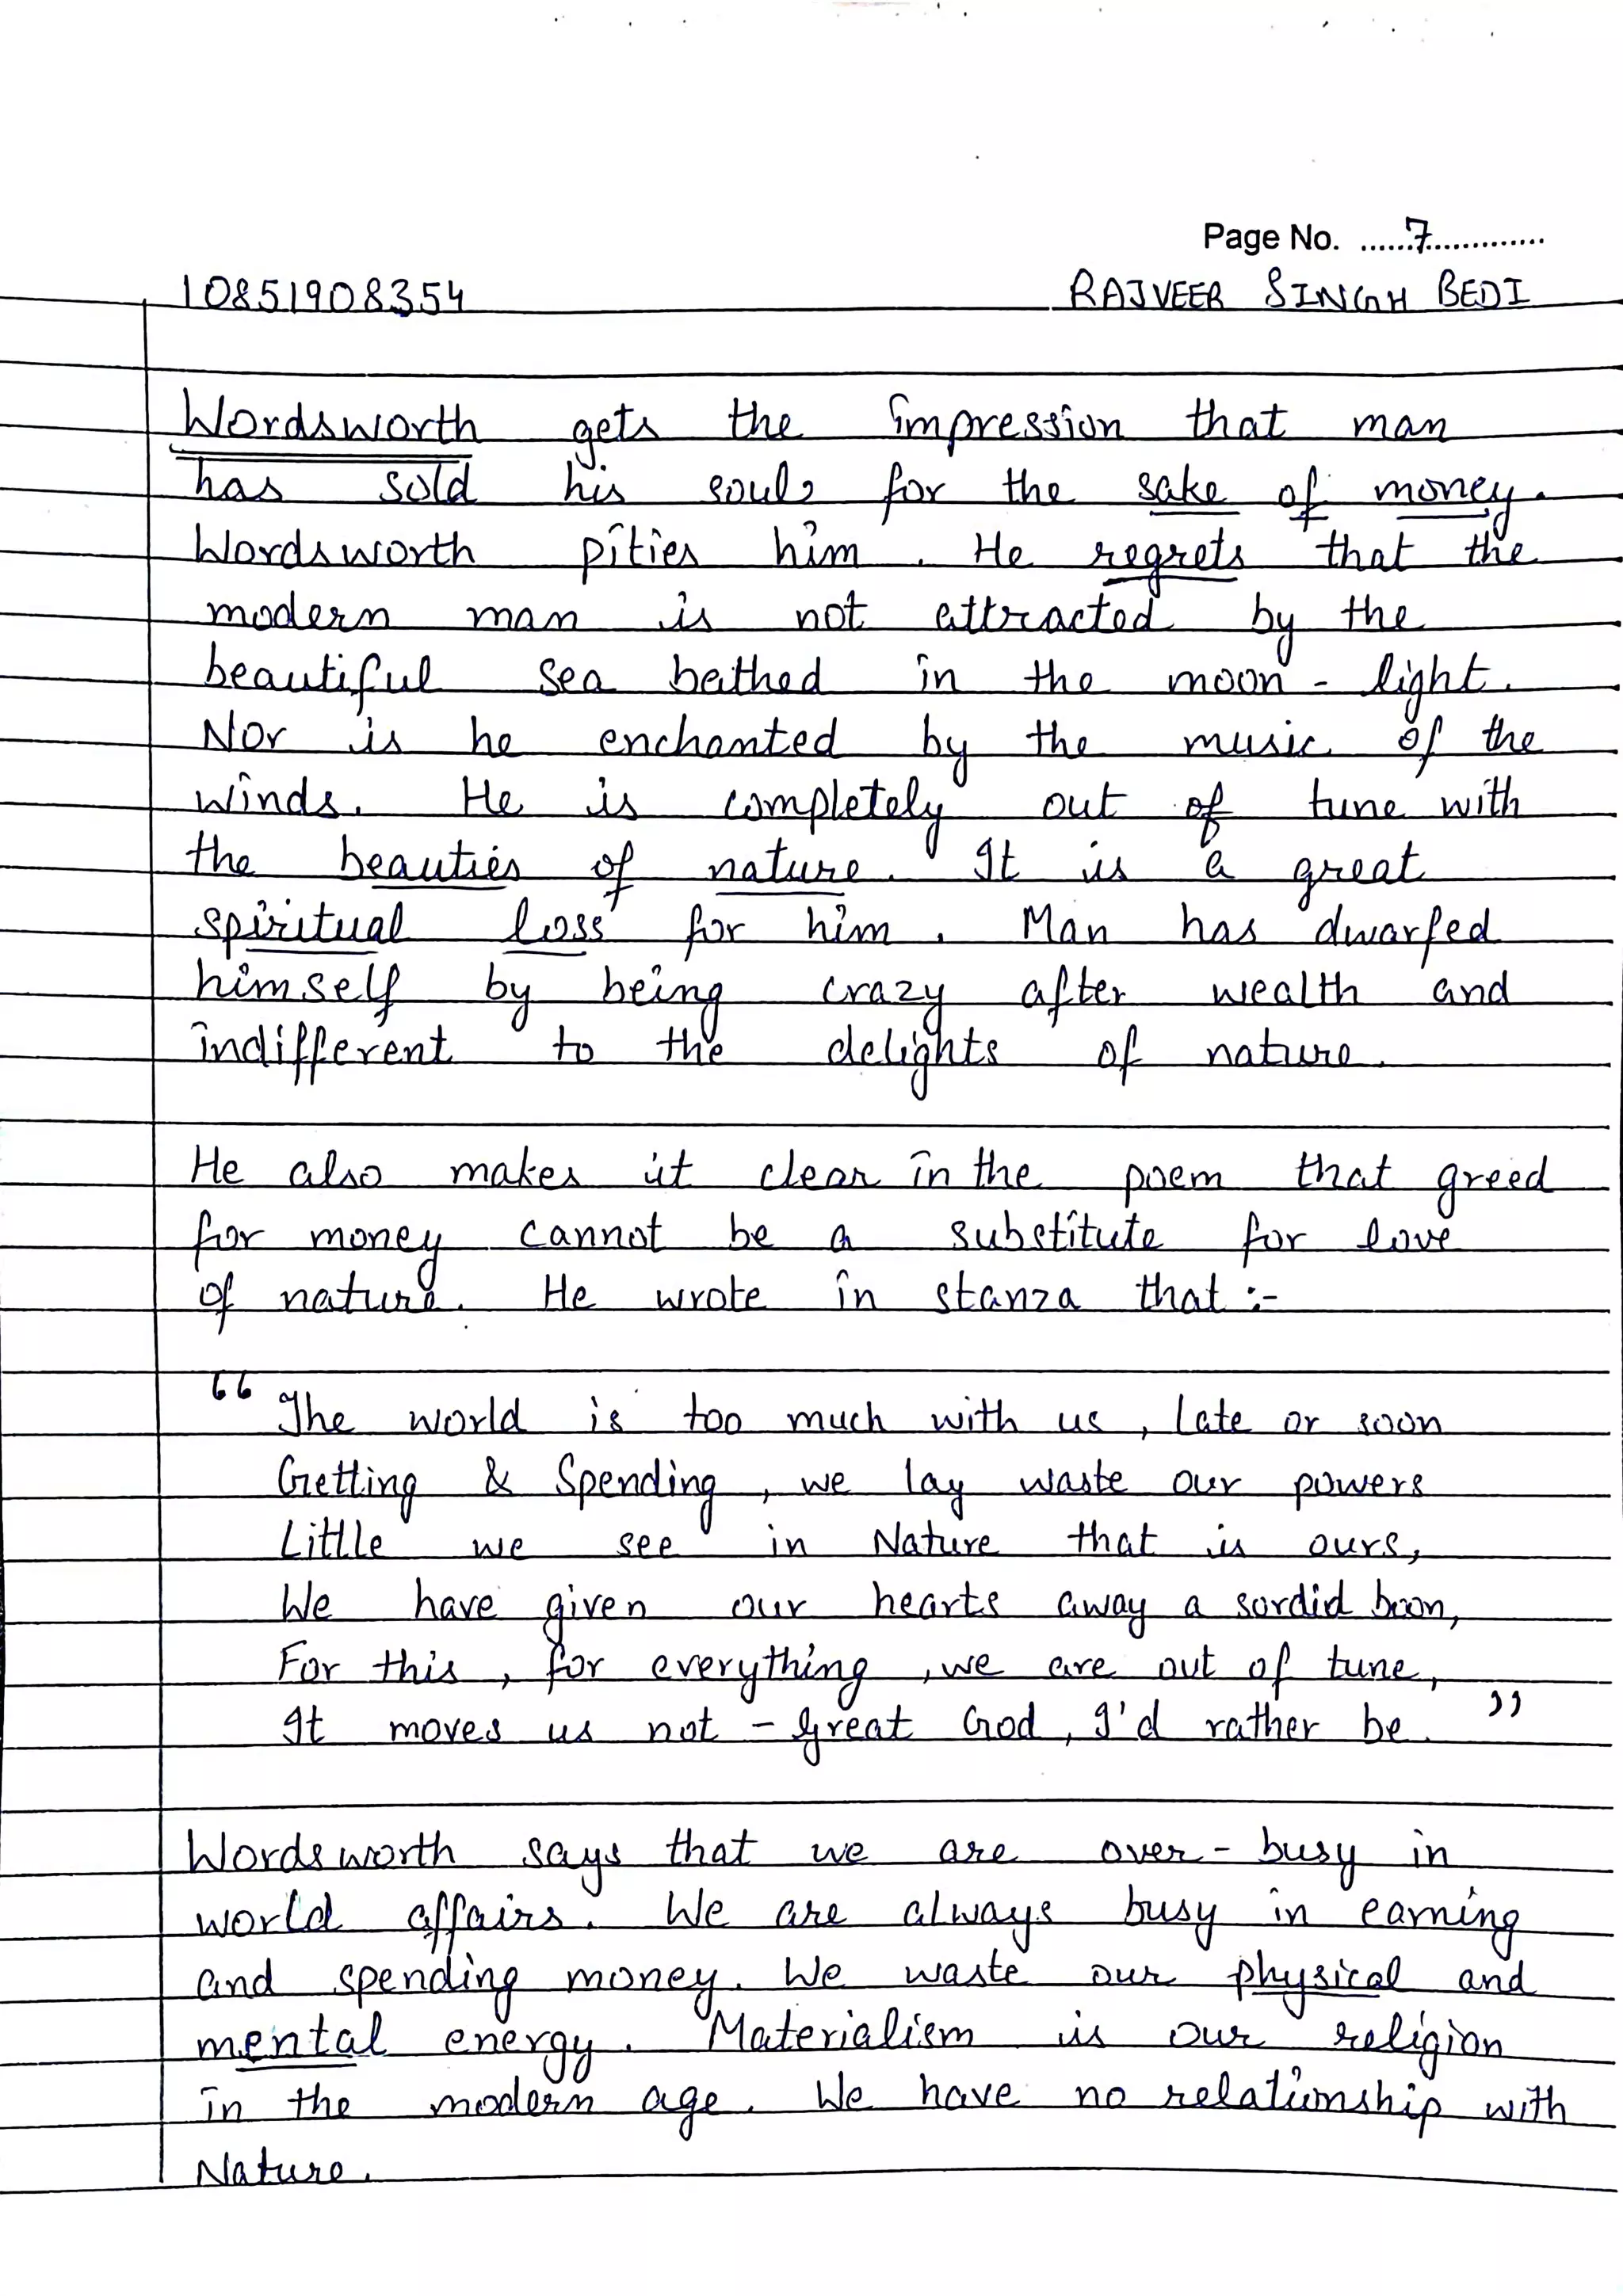 Page No. ......7.............
10851908354 RAJVEER SINGH BEDI
Wordsworth gets the impression that man
has sold his soul for the sake of money.
Wordsworth pities him. He regrets that the
modern man is not attracted by the
beautiful sea bathed in the moon - light.
Nor is he enchanted by the music of the
winds. He is completely out of tune with
the beauties of nature. It is a great
spiritual loss for him. Man has dwarfed
himself by being crazy after wealth and
indifferent to the delights of nature.
He also makes it clear in the poem that greed
for money cannot be a substitute for love
of nature. He wrote in stanza that :-
“ The world is too much with us, late or soon
Getting & Spending, we lay waste our powers
Little we see in Nature that is ours,
We have given our hearts away a sordid boon,
For this, for everything, we are out of tune,
It moves us not - great God, I'd rather be. ”
Wordsworth says that we are over - busy in
world affairs. We are always busy in earning
and spending money. We waste our physical and
mental energy. Materialism is our religion
in the modern age. We have no relationship with
Nature.